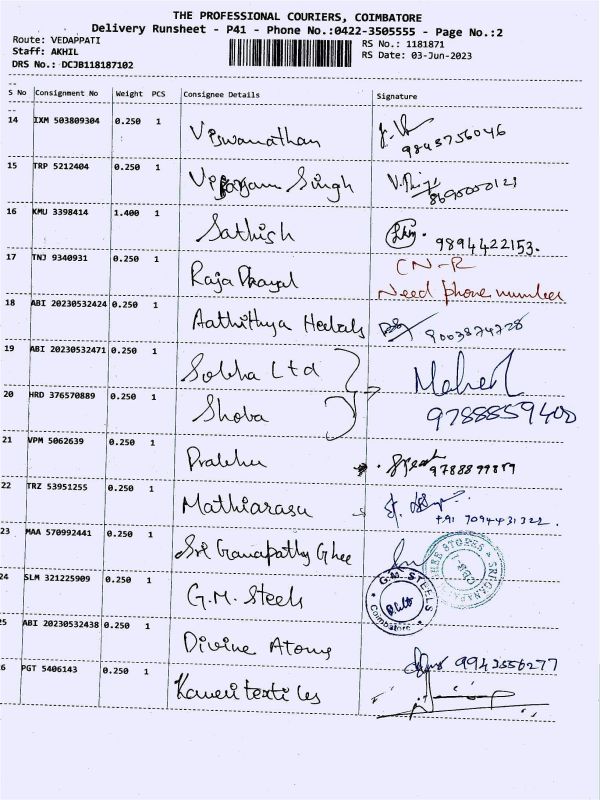 THE PROFESSIONAL COURIERS, COIMBATORE
Delivery Runsheet - P41 - Phone No.:0422-3505555 - Page No.:2
Route: VEDAPPATI
Staff: AKHIL
DRS No.: DCJB118187102
RS No.: 1181871
RS Date: 03-Jun-2023
S No Consignment No Weight PCS Consignee Details Signature
14 IXM 503809304 0.250 1 Viswanathan 9843756046
15 TRP 5212404 0.250 1 Singh 8690000121
16 KMU 3398414 1.400 1 Sathish 9894422153.
17 TNJ 9340931 0.250 1 Raja Dhayal CN-R
Need phone number
18 ABI 20230532424 0.250 1 Aathithya Herbals 8003874728
19 ABI 20230532471 0.250 1 Sobha Ltd
20 HRD 376570889 0.250 1 Shoba 9788859400
21 VPM 5062639 0.250 1 Prabhu 9788899819
22 TRZ 53951255 0.250 1 Mathiarasu +91 7094431322.
23 MAA 570992441 0.250 1 Sri Ganapathy Ghee
24 SLM 321225909 0.250 1 G.M. Steels G.M. STEELS Coimbatore
25 ABI 20230532438 0.250 1 Divine Atoms 9942556277
26 PGT 5406143 0.250 1 Kaveri textiles